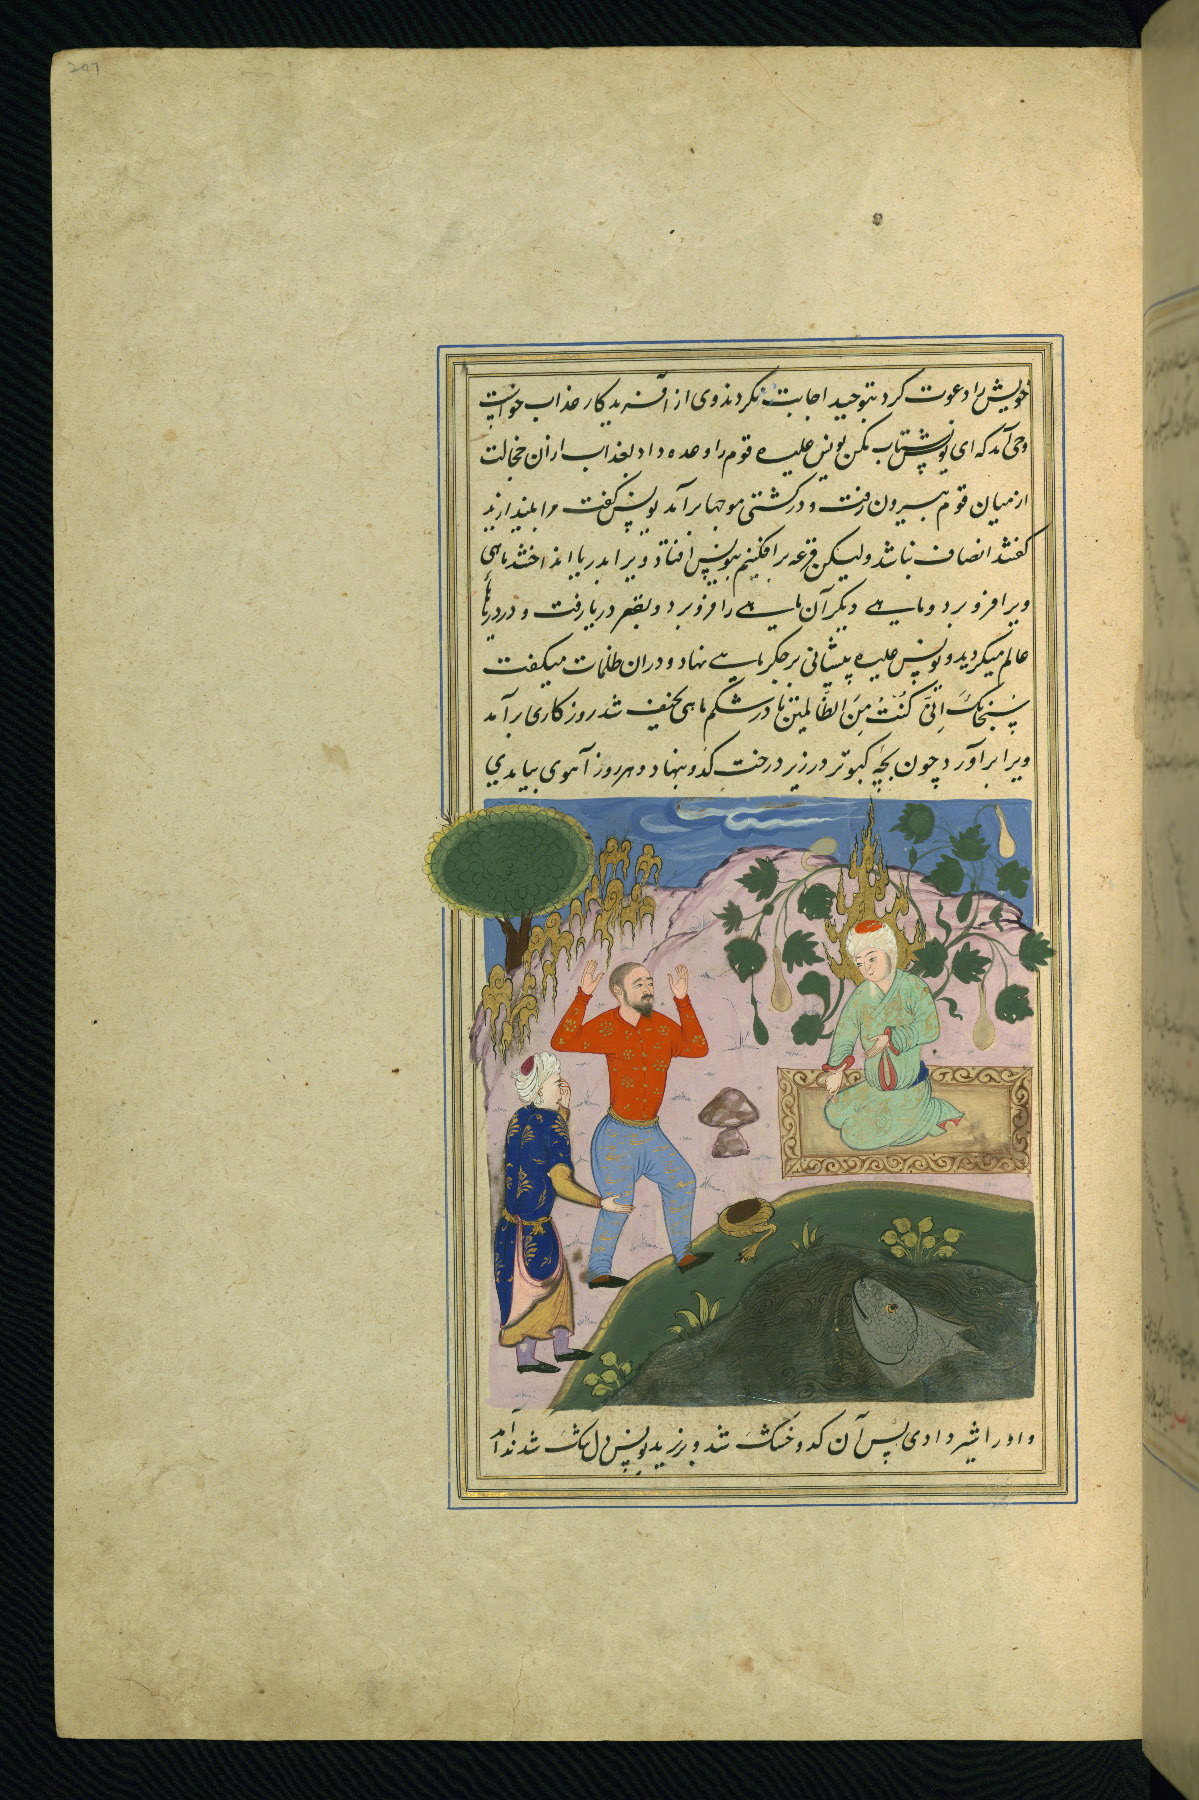 207
خویش را دعوت کرد بتوحید اجابت نکردند وی از آفریدکار عذاب خواست
وحی آمد که ای یونس شتاب مکن یونس علیه قوم را وعده داد بعذاب از ان خجالت
از میان قوم بیرون رفت و در کشتی موجها برآمد یونس کفت مرا بیندازید
کفتند انصاف نباشد ولیکن قرعه برافکنیم بیونس افتاد ویرا بدریا انداختند ماهی
ویرا فرو برد و ماهی دیکر آن ماهی را فرو برد و بقعر دریا رفت و در دریاء
عالم میکردید و یونس علیه پیشانی بر جکر ماهی نهاد و در ان ظلمات میکفت
سُبْحَانَكَ اِنّیِ كُنْتُ مِنَ الظَّالمین تا در شکم ماهی نحیف شد روز کاری برآمد
ویرا برآورد چون بچهٔ کبوتر در زیر درخت کدو بنهاد و هر روز آهوی بیامدی
و او را شیر دادی پس آن کدو خشک شد و بریزید یونس دل تنک شد ندا آمد